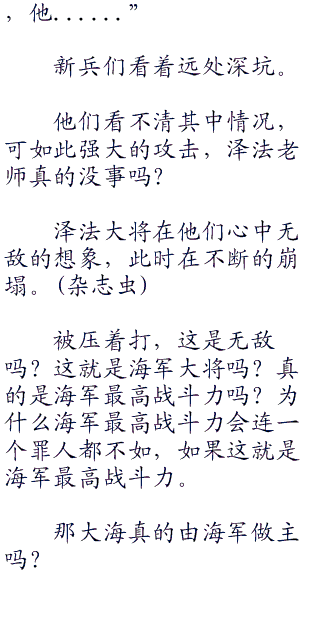 ，他......”
新兵们看着远处深坑。
他们看不清其中情况，
可如此强大的攻击，泽法老
师真的没事吗？
泽法大将在他们心中无
敌的想象，此时在不断的崩
塌。(杂志虫)
被压着打，这是无敌
吗？这就是海军大将吗？真
的是海军最高战斗力吗？为
什么海军最高战斗力会连一
个罪人都不如，如果这就是
海军最高战斗力。
那大海真的由海军做主
吗？